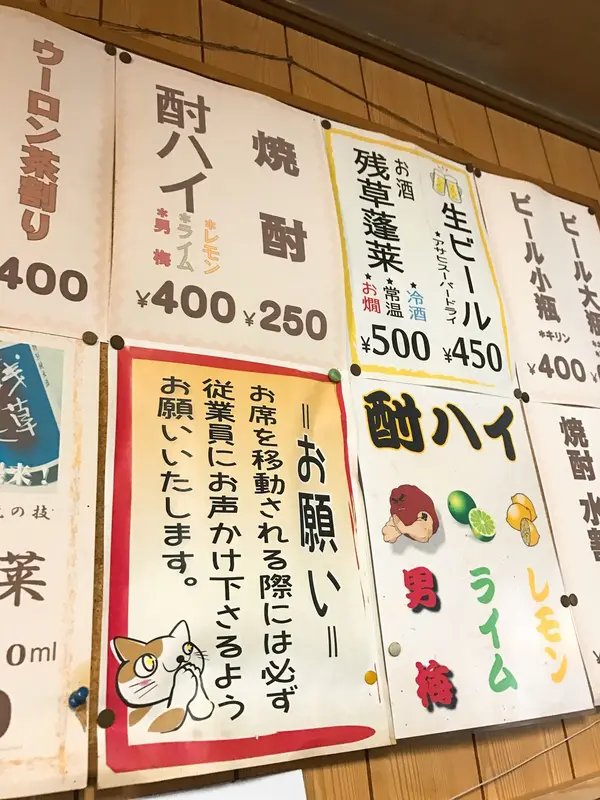 ウーロン茶割り
400
焼酎
¥250
酎ハイ
*レモン
*ライム
*男梅
¥400
生ビール
★アサヒスーパードライ
¥450
お酒
残草蓬莱
★冷酒
★常温
★お燗
¥500
ビール大瓶
ビール小瓶
*キリン
¥400
¥6
=お願い=
お席を移動される際には必ず
従業員にお声かけ下さるよう
お願いいたします。
酎ハイ
レモン
ライム
男梅
焼酎 水割
残草
来!
の技
莱
0ml